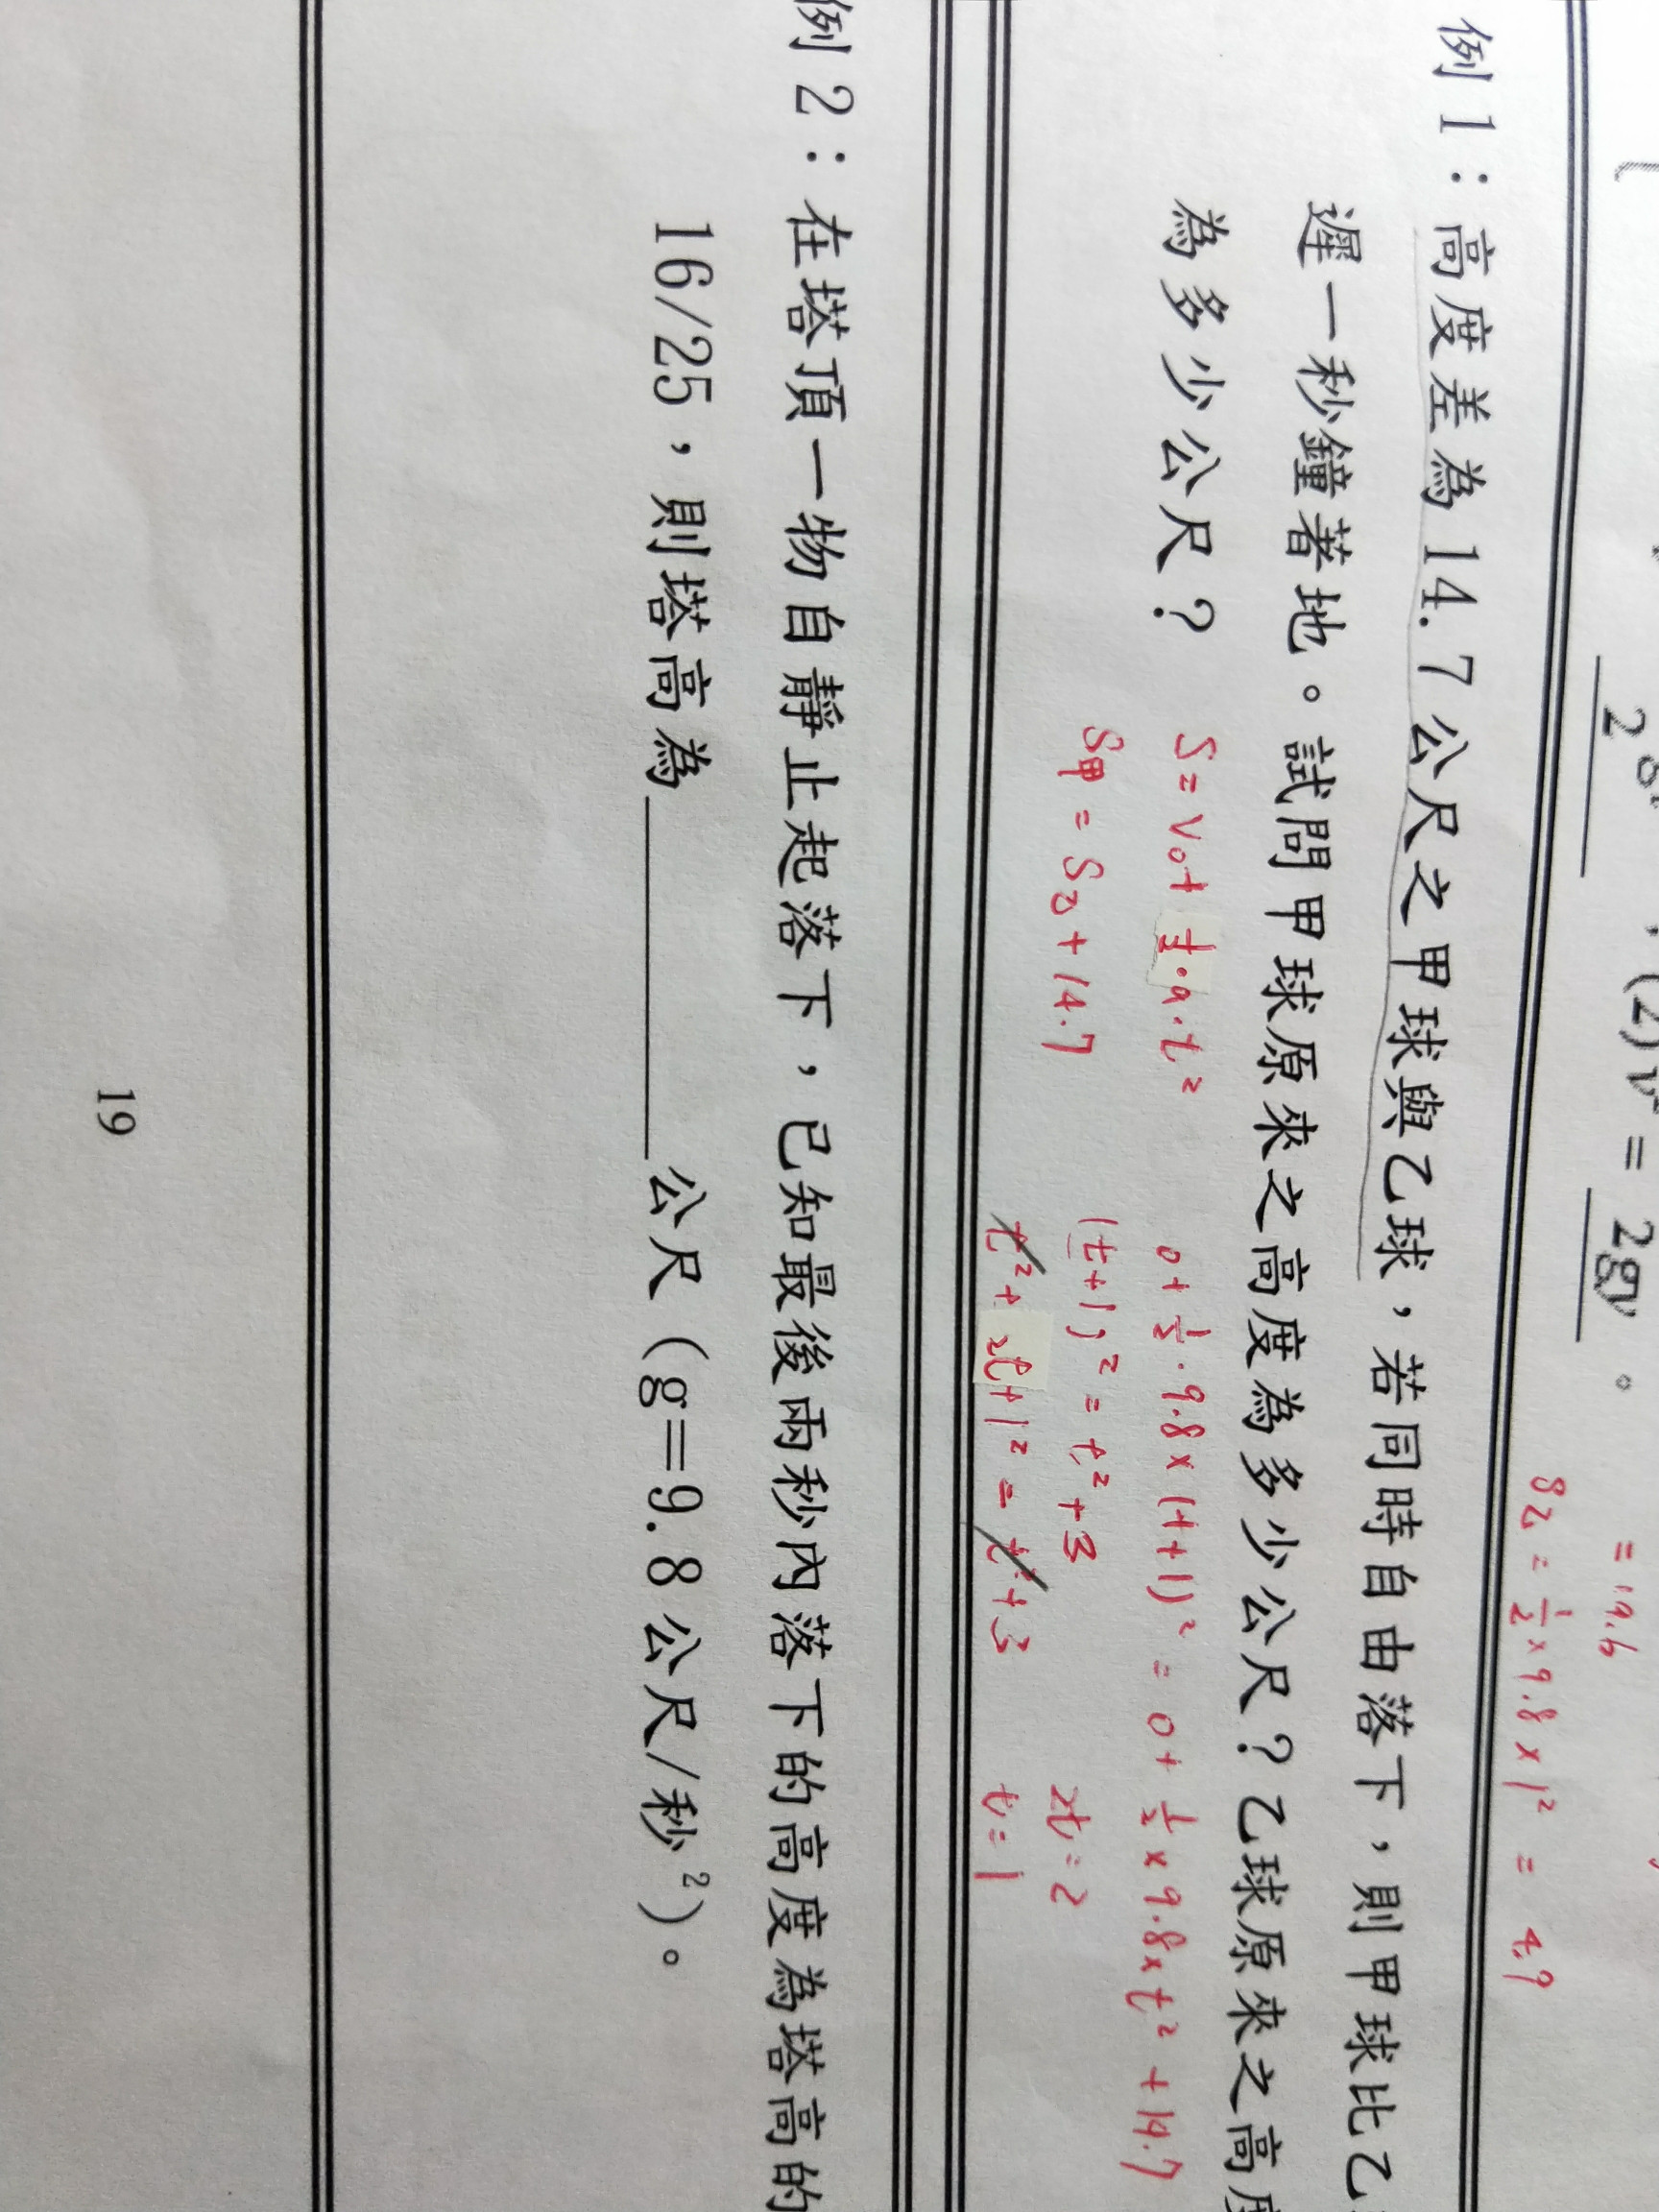 2g
，(2)v²=2gy。
=19.6
S乙=½×9.8×1²=4.9
例1：高度差為14.7公尺之甲球與乙球，若同時自由落下，則甲球比乙
遲一秒鐘著地。試問甲球原來之高度為多少公尺？乙球原來之高度
為多少公尺？
S=V0t ½·a·t²
0+½·9.8×(t+1)²=0+½×9.8×t²+14.7
S甲=S乙+14.7
(t+1)²=t²+3
2t=2
t²+2t+1²=t²+3
t=1
例2：在塔頂一物自靜止起落下，已知最後兩秒內落下的高度為塔高的
16/25，則塔高為________公尺(g=9.8公尺/秒²)。
19